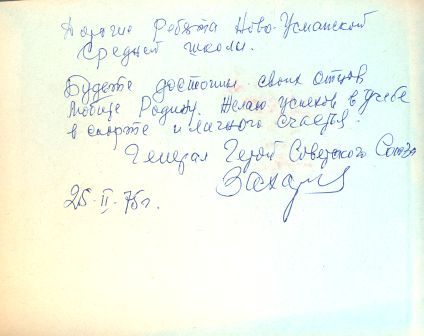 Дорогие ребята Ново-Усманской
средней школы.
Будьте достойны своих отцов
Любите Родину. Желаю успехов в учебе
в спорте и личного счастья.
Генерал Герой Советского Союза
Захаров
25-II-75г.